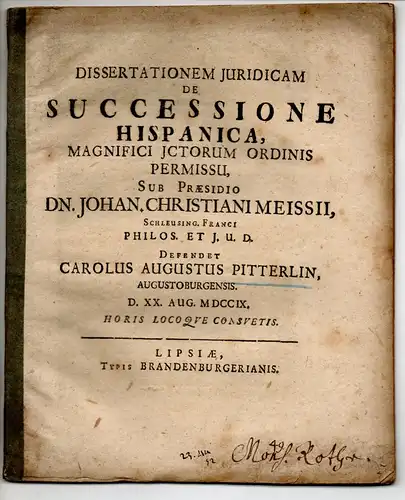 DISSERTATIONEM JURIDICAM
DE
SUCCESSIONE
HISPANICA,
MAGNIFICI JCTORUM ORDINIS
PERMISSU,
SUB PRÆSIDIO
DN. JOHAN. CHRISTIANI MEISSII,
SCHLEUSING. FRANCI
PHILOS. ET J. U. D.
DEFENDET
CAROLUS AUGUSTUS PITTERLIN,
AUGUSTOBURGENSIS.
D. XX. AUG. MDCCIX.
HORIS LOCOQVE CONSVETIS.
LIPSIÆ,
TYPIS BRANDENBURGERIANIS.
Mons. Rothe.